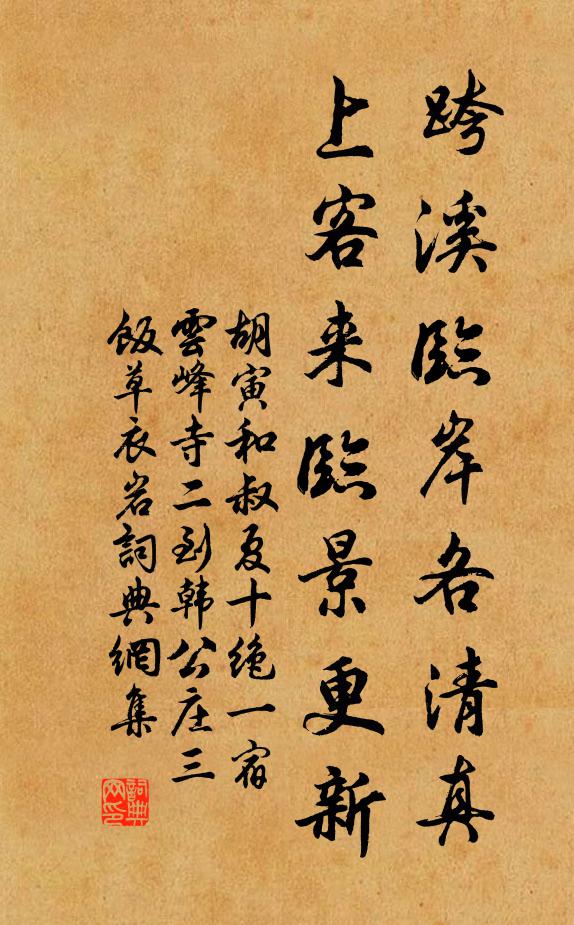 跨溪臨岸各清真
上客来臨景更新
胡寅和叔夏十绝一宿
雲峰寺二到韩公庄三
飯草衣岩詞典網集
詞典網印